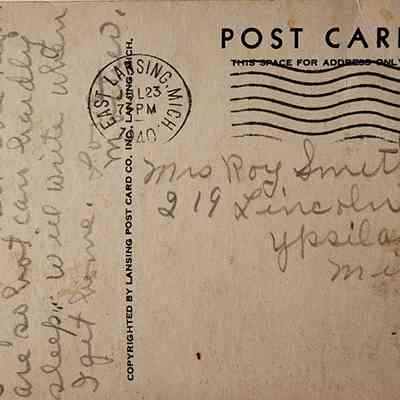 POST CAR
THIS SPACE FOR ADDRESS ONLY
EAST LANSING, MICH.
JUL 23
7 PM
1940
Mrs Roy Smit
219 Lincoln
Ypsila
Mi
COPYRIGHTED BY LANSING POST CARD CO. INC. LANSING, MICH.
are so hot can hardly
sleep. Will write when
I get home.